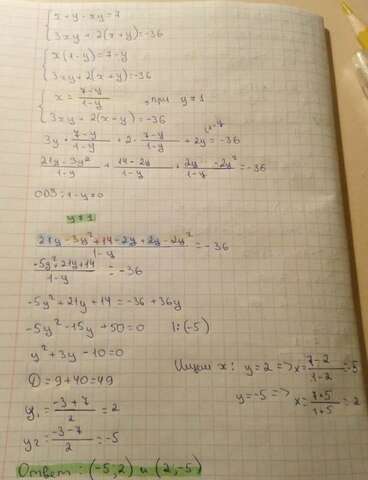 { x+y-xy=7
3xy+2(x+y)=-36
{ x(1-y)=7-y
3xy+2(x+y)=-36
{ x = (7-y)/(1-y) , при y≠1
3xy+2(x-y)=-36
3y · (7-y)/(1-y) + 2 · (7-y)/(1-y) + 2y (1-y) = -36
(21y-3y²)/(1-y) + (14-2y)/(1-y) + (2y-2y²)/(1-y) = -36
ОДЗ: 1-y≠0
y≠1
(21y-3y²+14-2y+2y-2y²)/(1-y) = -36
(-5y²+21y+14)/(1-y) = -36
-5y²+21y+14=-36+36y
-5y²-15y+50=0 |:(-5)
y²+3y-10=0
D=9+40=49
y₁ = (-3+7)/2 = 2
y₂ = (-3-7)/2 = -5
Ищем x: y=2 => x = (7-2)/(1-2) = -5
y=-5 => x = (7+5)/(1+5) = 2
Ответ: (-5,2) и (2,-5)